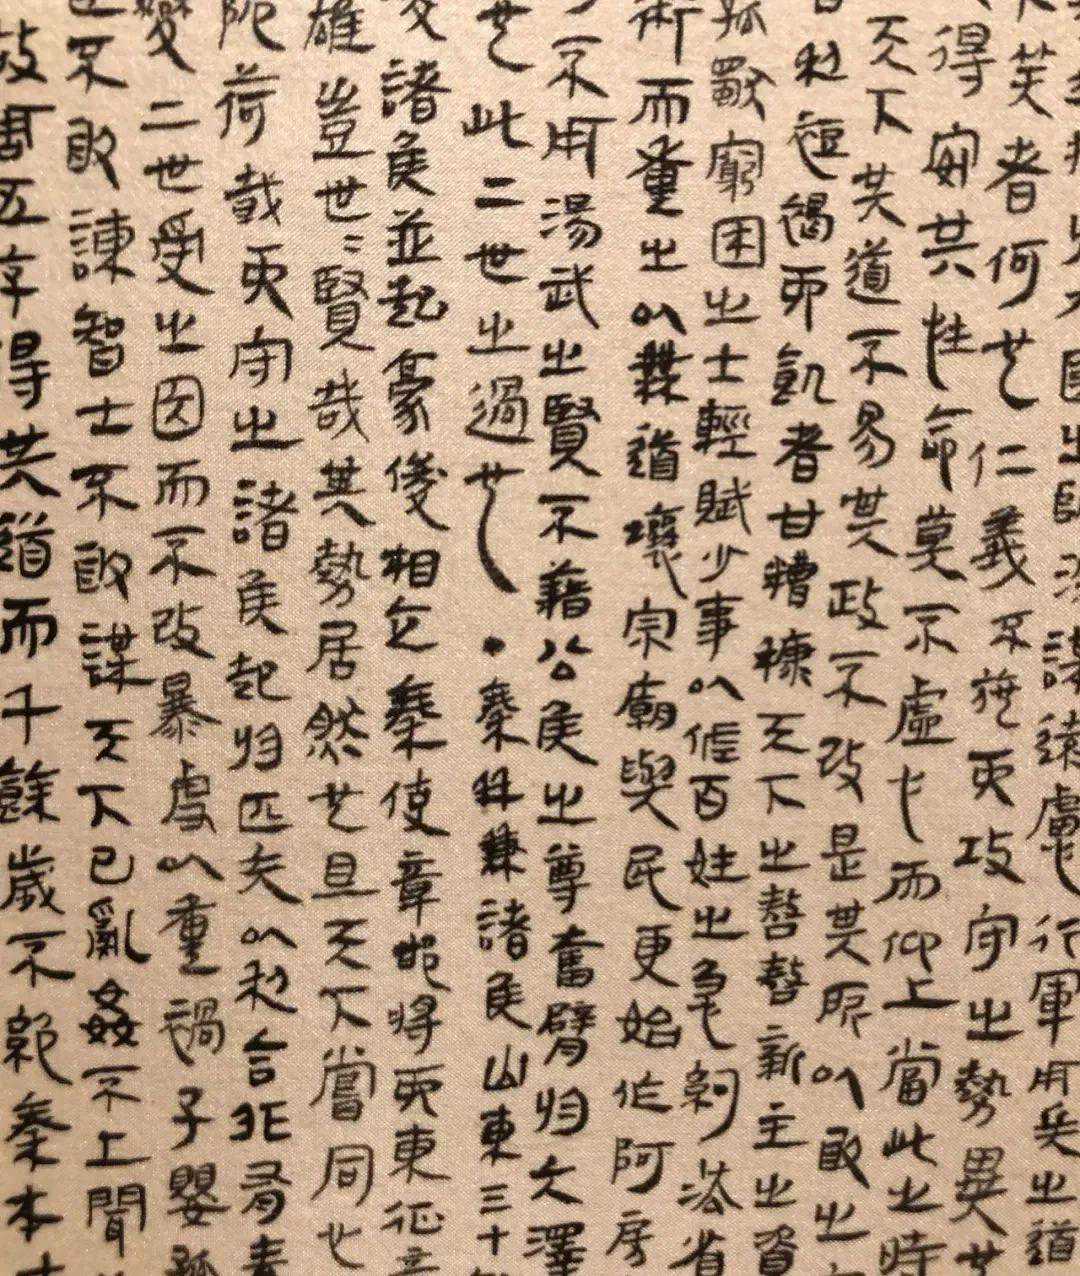 國之師深謀遠慮行軍用兵之道
笑者何也仁義不施而攻守之勢異也
得安其性命莫不虛心而仰上當此之時
天下其道不易其政不改是其所以取之
利裋褐而飢者甘糟糠天下之嗸嗸新主之資
孤獨窮困之士輕賦少事以佐百姓之急約法省
術而重之以無道壞宗廟與民更始作阿房
不用湯武之賢不藉公侯之尊奮臂於大澤
也此二世之過也·秦并兼諸侯山東三十
諸侯並起豪俊相立秦使章邯將而東征
雄豈世=賢哉其勢居然也且天下嘗同也
阸荷戟而守之諸侯起於匹夫以利合非有素
變二世受之因而不改暴虐以重禍子嬰孤
不敢諫智士不敢謀天下已亂姦不上聞
故周五序得其道而千餘歲不絕秦本